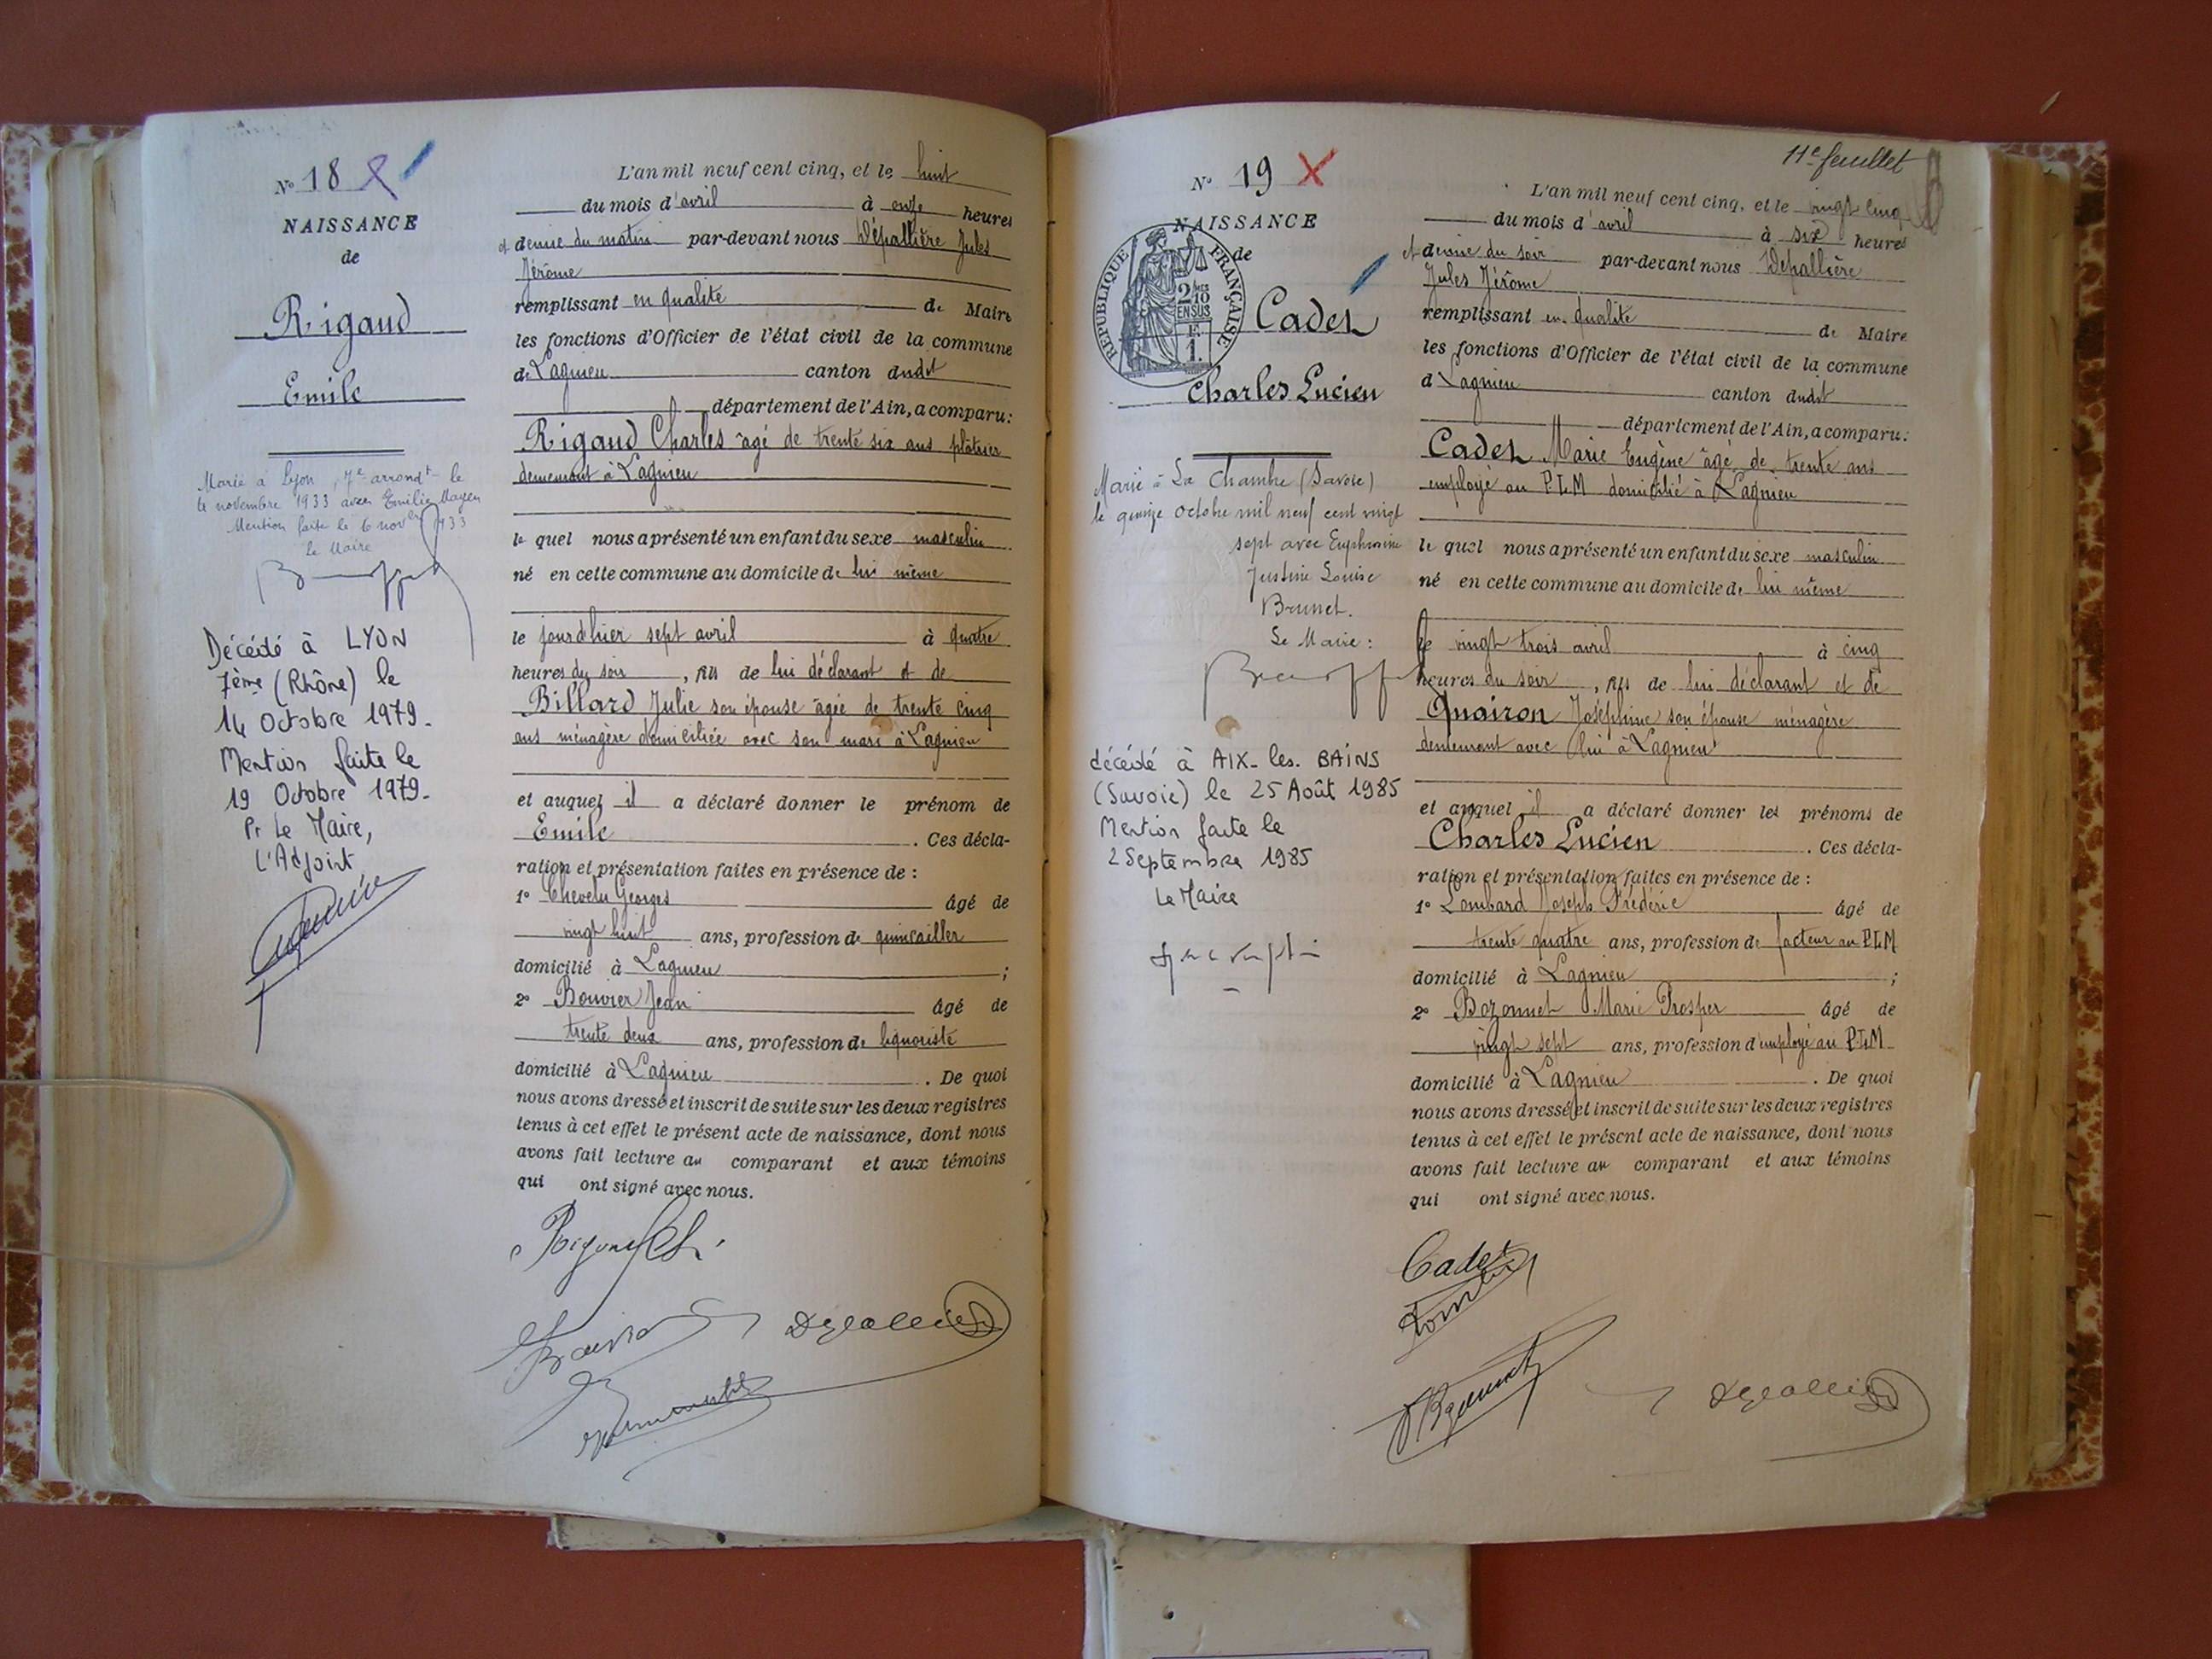 N° 18
NAISSANCE
de
Rigaud
Emile
Marié à Lyon, 7e arrondt le
4 novembre 1933 avec Emilie Mayen
Mention faite le 6 novbre 1933
Le Maire
Décédé à LYON
7ème (Rhône) le
14 Octobre 1979.
Mention faite le
19 Octobre 1979.
Pr Le Maire,
L'Adjoint
L'an mil neuf cent cinq, et le huit
du mois d'avril à onze heures
et demie du matin par-devant nous Dépallière Jules
Jérôme
remplissant en qualité de Maire
les fonctions d'Officier de l'état civil de la commune
de Lagnieu canton dudit
département de l'Ain, a comparu:
Rigaud Charles âgé de trente six ans plâtrier
demeurant à Lagnieu
le quel nous a présenté un enfant du sexe masculin
né en cette commune au domicile de lui même
le jourd'hier sept avril à quatre
heures du soir, fils de lui déclarant et de
Billard Julie son épouse âgée de trente cinq
ans ménagère domiciliée avec son mari à Lagnieu
et auquel il a déclaré donner le prénom de
Emile. Ces décla-
ration et présentation faites en présence de :
1° Chevelu Georges âgé de
vingt huit ans, profession de quincailler
domicilié à Lagnieu ;
2° Bouvier Jean âgé de
trente deux ans, profession de liquoriste
domicilié à Lagnieu. De quoi
nous avons dressé et inscrit de suite sur les deux registres
tenus à cet effet le présent acte de naissance, dont nous
avons fait lecture au comparant et aux témoins
qui ont signé avec nous.
Rigaud Ch.
11e feuillet
N° 19 X
NAISSANCE
de
RÉPUBLIQUE FRANÇAISE
2/10
EN SUS
F.
1.
Cadet
Charles Lucien
Marié à La Chambre (Savoie)
le quinze octobre mil neuf cent vingt
sept avec Euphrosine
Justine Louise
Brunet.
Le Maire :
décédé à AIX-les-BAINS
(Savoie) le 25 Août 1985
Mention faite le
2 Septembre 1985
Le Maire
L'an mil neuf cent cinq, et le vingt cinq
du mois d'avril à six heures
et demie du soir par-devant nous Depallière
Jules Jérôme
remplissant en qualité de Maire
les fonctions d'Officier de l'état civil de la commune
d Lagnieu canton dudit
département de l'Ain, a comparu:
Cadet Marie Eugène âgé de trente ans
employé au P.L.M domicilié à Lagnieu
le quel nous a présenté un enfant du sexe masculin
né en cette commune au domicile de lui même
le vingt trois avril à cinq
heures du soir, fils de lui déclarant et de
Quairon Joséphine son épouse ménagère
demeurant avec lui à Lagnieu
et auquel il a déclaré donner les prénoms de
Charles Lucien. Ces décla-
ration et présentation faites en présence de :
1° Lombard Joseph Frédéric âgé de
trente quatre ans, profession de facteur au P.L.M
domicilié à Lagnieu ;
2° Bozonnet Marie Prosper âgé de
vingt sept ans, profession d'employé au P.L.M
domicilié à Lagnieu. De quoi
nous avons dressé et inscrit de suite sur les deux registres
tenus à cet effet le présent acte de naissance, dont nous
avons fait lecture au comparant et aux témoins
qui ont signé avec nous.
Cadet